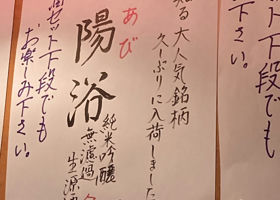 知る大人気銘柄
久〜ぶりに入荷しました
あび
陽浴
純米吟醸
無濾過
生源酒
セット下段でも
お楽しみ下さい。
段でも
下さい。